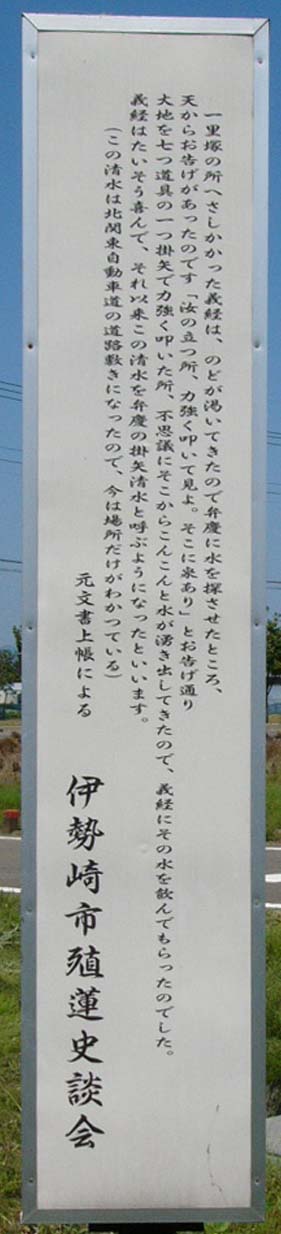 一里塚の所へさしかかった義経は、のどが渇いてきたので弁慶に水を探させたところ、
天からお告げがあったのです「汝の立つ所、力強く叩いて見よ。そこに泉あり」とお告げ通り
大地を七つ道具の一つ掛矢で力強く叩いた所、不思議にそこからこんこんと水が湧き出してきたので、義経にその水を飲んでもらったのでした。
義経はたいそう喜んで、それ以来この清水を弁慶の掛矢清水と呼ぶようになったといいます。
(この清水は北関東自動車道の道路敷きになったので、今は場所だけがわかつている)
元文書上帳による
伊勢崎市殖蓮史談会